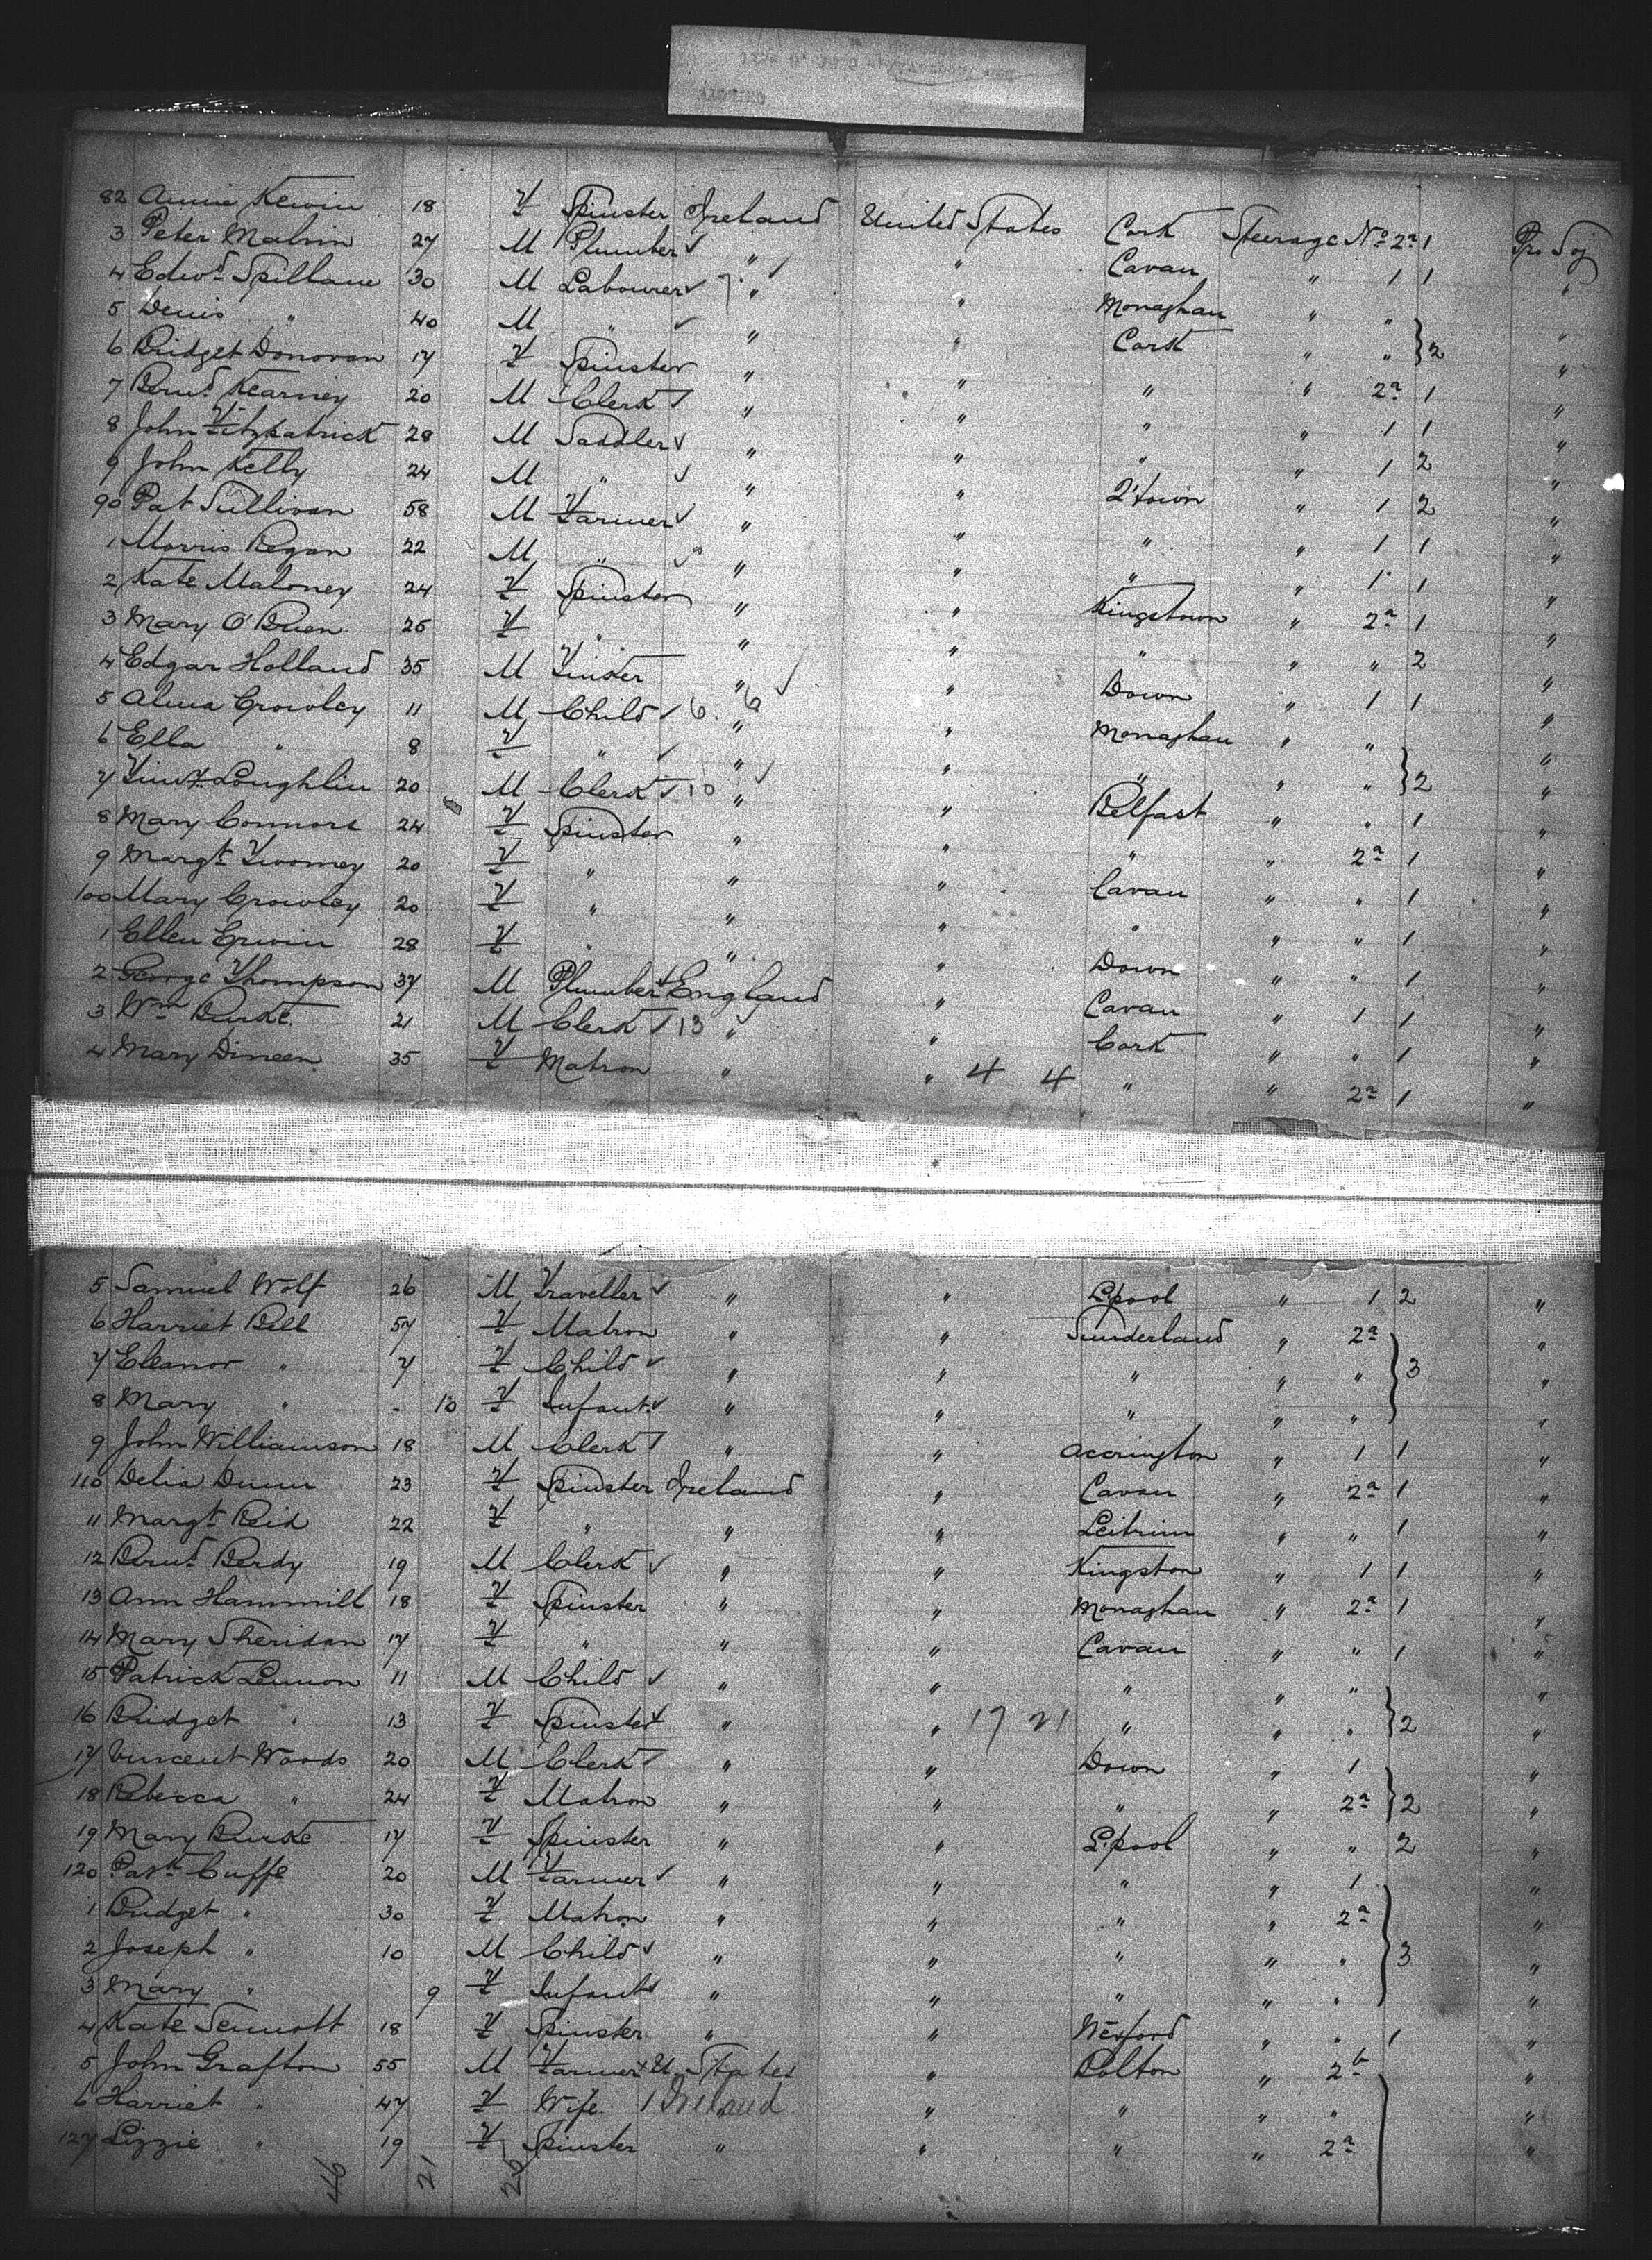 82 Annie Kewin 18 F Spinster Ireland United States Cork Steerage No 2a 1 Pro Soj
3 Peter Malvin 27 M Plumber " " Cavan " 1 1 "
4 Edwd Spillane 30 M Labourer " " Monaghan " " "
5 Denis " 40 M " " " Cork " " } 2 "
6 Bridget Donovan 17 F Spinster " " " " 2a 1 "
7 Bernd Kearney 20 M Clerk " " " " 1 1 "
8 John Fitzpatrick 28 M Saddler " " " " 1 2 "
9 John Kelly 24 M " " " Q'town " 1 2 "
90 Pat Sullivan 58 M Farmer " " " " 1 1 "
1 Morris Regan 22 M " " " " " 1 1 "
2 Kate Maloney 24 F Spinster " " Kingstown " 2a 1 "
3 Mary O'Brien 25 F " " " " " " 2 "
4 Edgar Holland 35 M " " Down " 1 1 "
5 Alma Crowley 11 M Child 6 6 " " Monaghan " " "
6 Ella " 8 F " " " " " " } 2 "
7 Loughlin 20 M Clerk 10 " " Belfast " " 1 "
8 Mary Connors 24 F Spinster " " " " 2a 1 "
9 Margt Twomey 20 F " " " Cavan " " 1 "
100 Mary Crowley 20 F " " " " " " 1 "
1 Ellen Erwin 28 F " " " Down " " 1 "
2 George Thompson 37 M Plumber England " Cavan " 1 1 "
3 Wm Burke 21 M Clerk 13 " " Cork " " 1 "
4 Mary Dineen 35 F Matron " " 4 4 " " 2a 1 "
5 Samuel Wolf 26 M Traveller " " L'pool " 1 2 "
6 Harriet Bell 57 F Matron " " Sunderland " 2a "
7 Eleanor " 7 F Child " " " " " } 3 "
8 Mary " - 10 F Infant " " " " " "
9 John Williamson 18 M Clerk " " Accrington " 1 1 "
110 Delia Dunn 23 F Spinster Ireland " Cavan " 2a 1 "
11 Margt Reid 22 F " " " Leitrim " " 1 "
12 Bernd Berdy 19 M Clerk " " Kingston " 1 1 "
13 Ann Hammill 18 F Spinster " " Monaghan " 2a 1 "
14 Mary Sheridan 17 F " " " Cavan " " 1 "
15 Patrick Lennon 11 M Child " " " " " "
16 Bridget " 13 F Spinster " " 17 21 " " " } 2 "
17 Vincent Woods 20 M Clerk " " Down " 1 "
18 Rebecca " 24 F Matron " " " " 2a } 2 "
19 Mary Burke 17 F Spinster " " L'pool " " 2 "
120 Patk Cuffe 20 M Farmer " " " " 1 "
1 Bridget " 30 F Matron " " " " 2a "
2 Joseph " 10 M Child " " " " " } 3 "
3 Mary " 9 F Infant " " " " " "
4 Kate Sennott 18 F Spinster " " Wexford " " 1 "
5 John Grafton 55 M Farmer U States " Bolton " 2b "
6 Harriet " 47 F Wife 1 Ireland " " " " "
127 Lizzie " 19 F Spinster " " " " 2a "
46 21